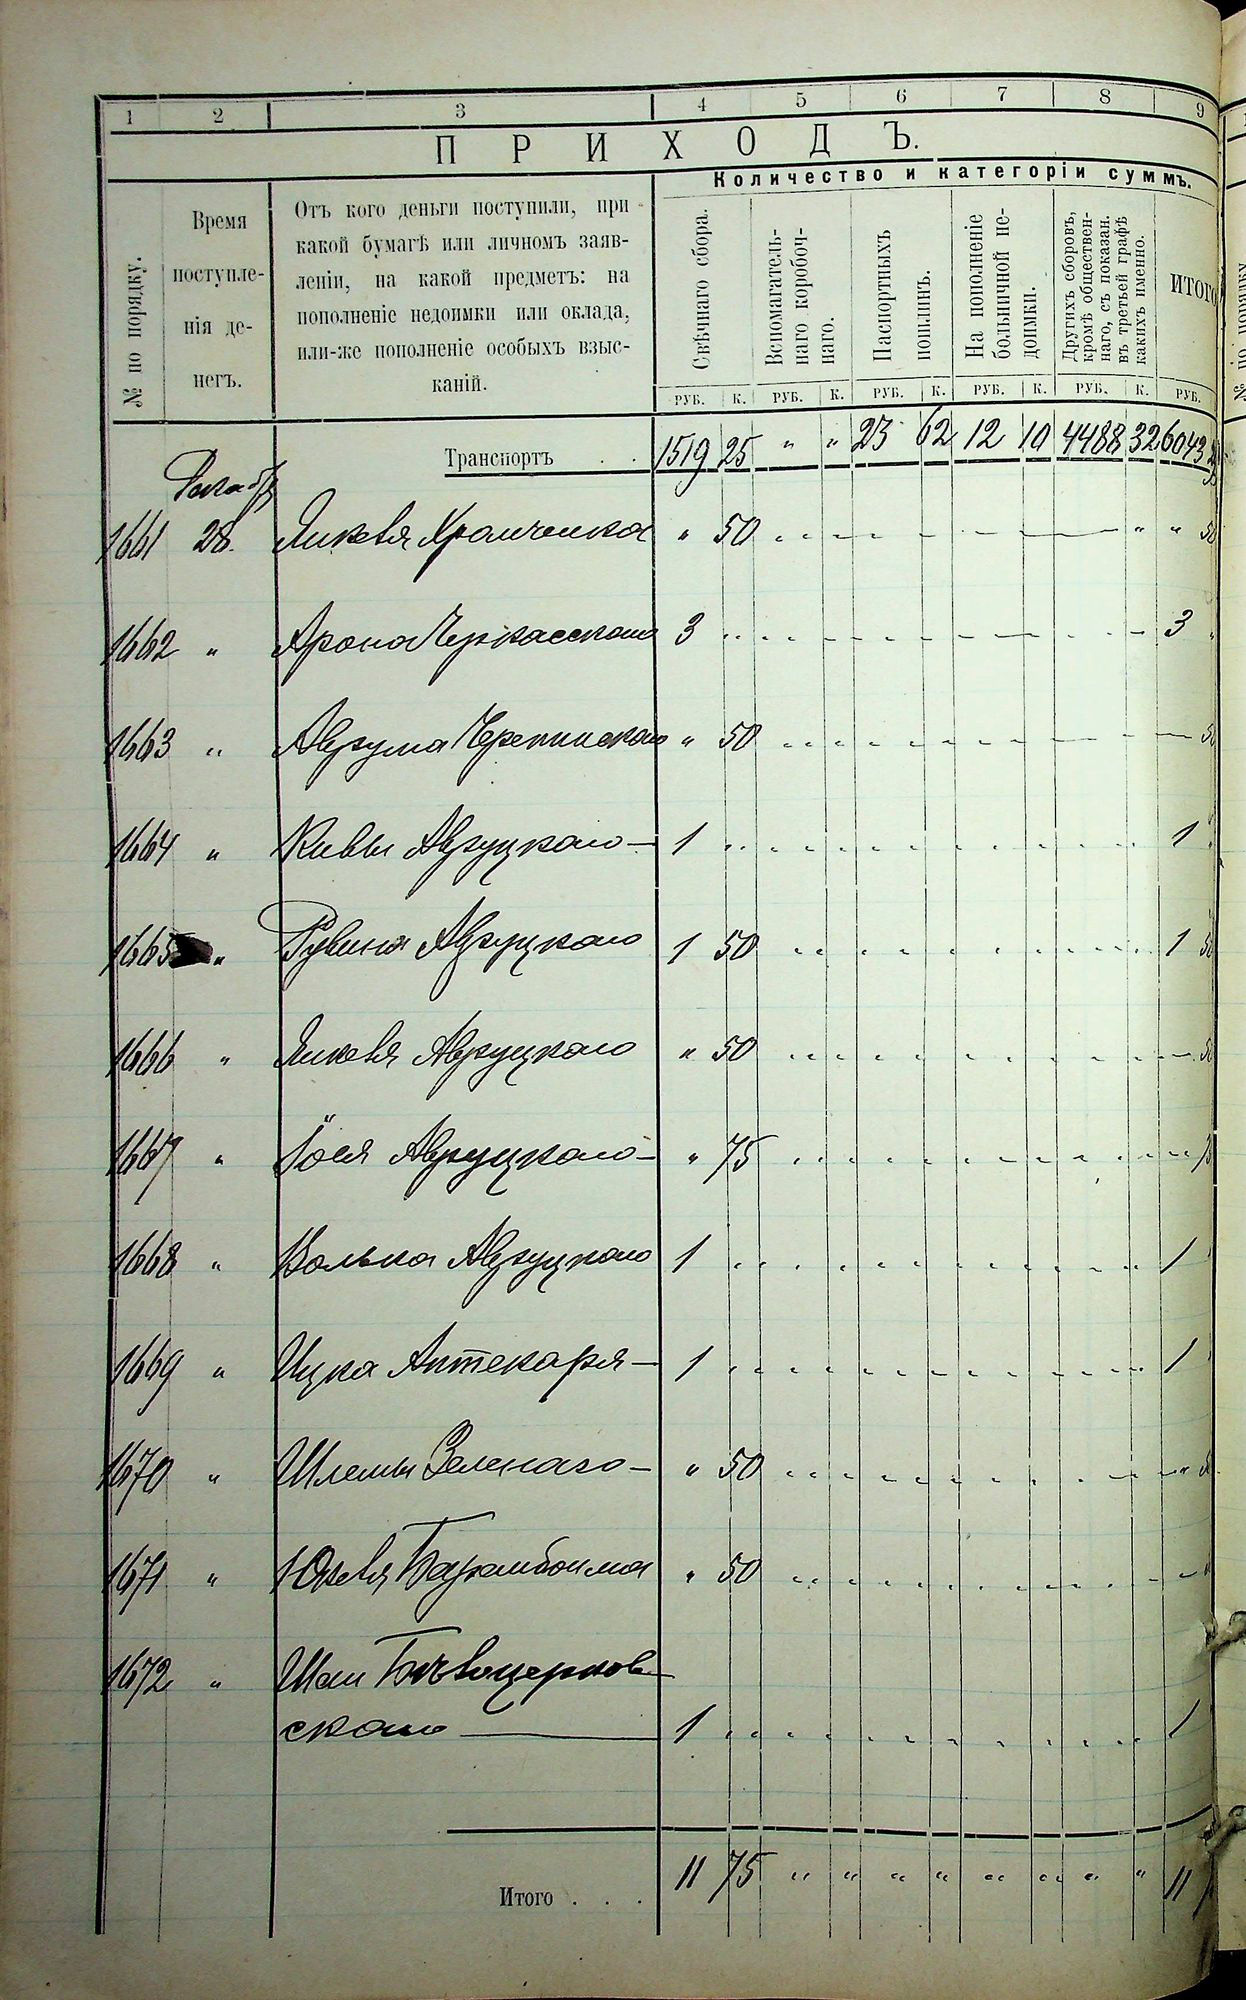 1 2 3 4 5 6 7 8 9
ПРИХОДЪ.
Количество и категоріи суммъ.
№ по порядку.
Время
поступле-
нія де-
негъ.
Отъ кого деньги поступили, при
какой бумагѣ или личномъ заяв-
леніи, на какой предметъ: на
пополненіе недоимки или оклада,
или-же пополненіе особыхъ взыс-
каній.
Свѣчнаго сбора.
Вспомагатель-
наго коробоч-
наго.
Паспортныхъ
пошлинъ.
На пополненіе
больничной не-
доимки.
Другихъ сборовъ,
кромѣ обществен-
наго, съ показан.
въ третьей графѣ
какихъ именно.
ИТОГО
РУБ. К. РУБ. К. РУБ. К. РУБ. К. РУБ. К. РУБ.
Транспортъ . . 1519 25 " " 23 62 12 10 4488 32 6043
1661 28. Янкеля " 50 " 50
1662 " Арона Черкасскаго 3 3
1663 " Аврума " 50 50
1664 " Кивы Авруцкаго 1 1
1665 " Рувина Авруцкаго 1 50 1 50
1666 " Янкеля Авруцкаго " 50 50
1667 " Іося Авруцкаго " 75
1668 " Волька Авруцкаго 1 1
1669 " Ицка Аптекаря 1 1
1670 " Шлемы Зеленаго " 50
1671 " " 50
1672 " Бѣлоцерков-
скаго 1 1
Итого . . . 11 75 " " " " " " " " 11